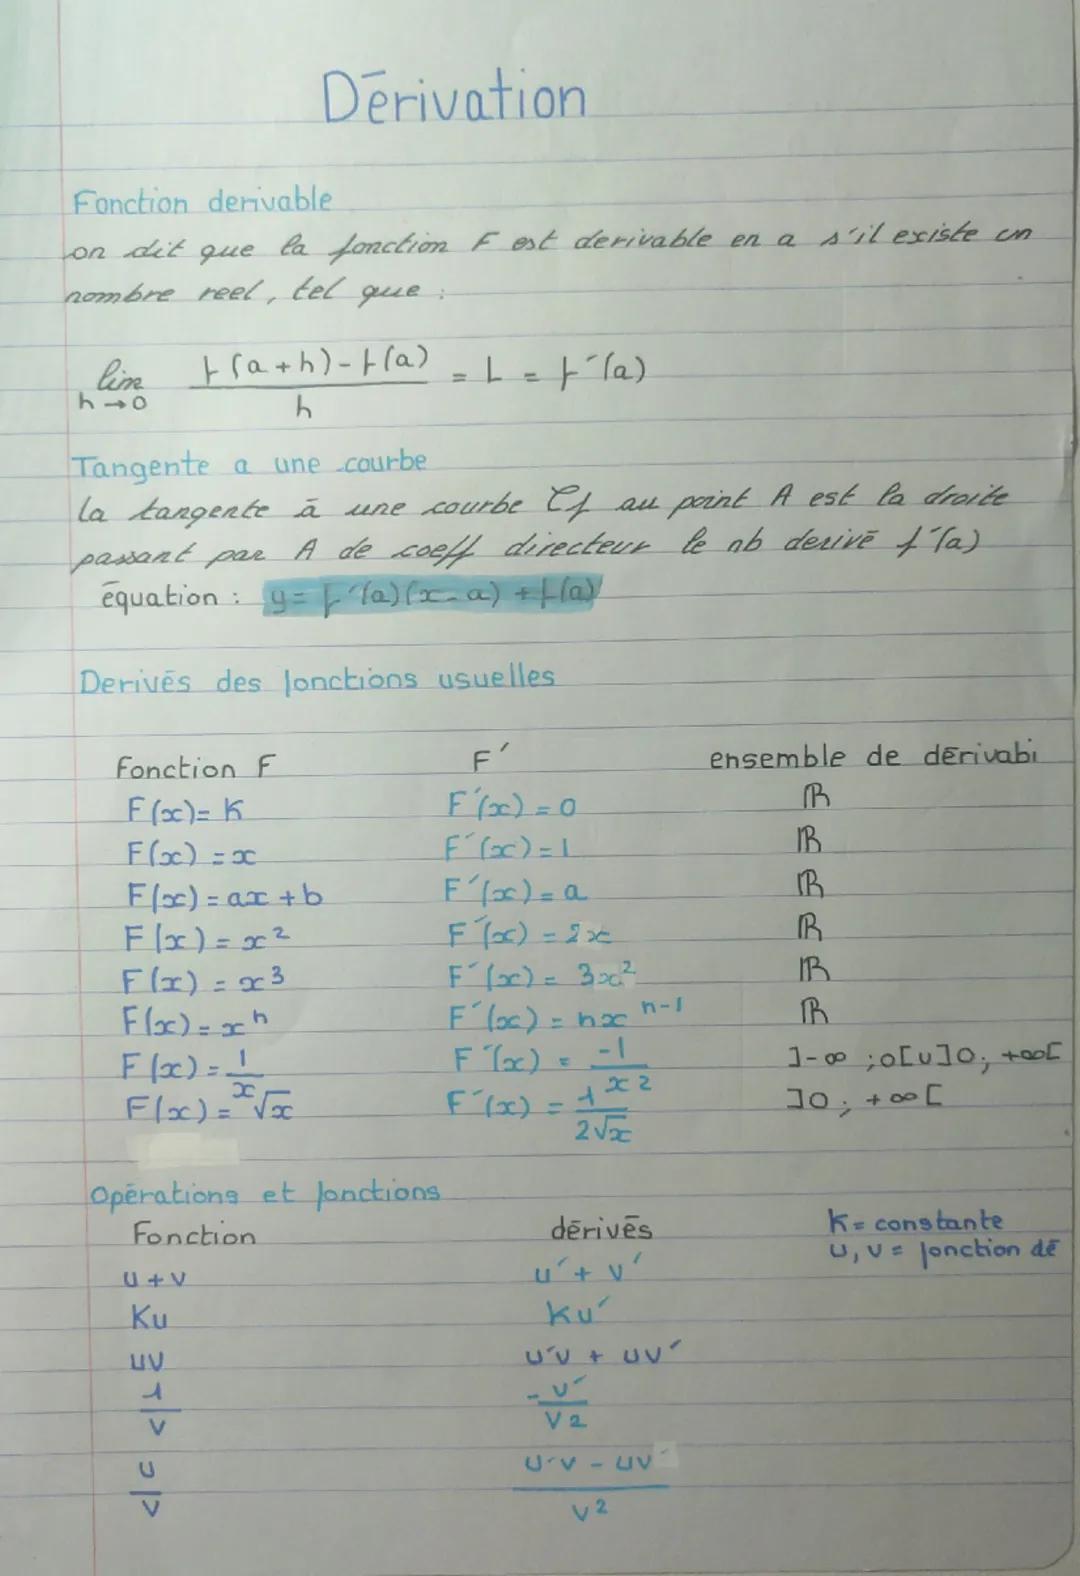 Dérivation
Fonction derivable
on dit que la fonction F est derivable en a s'il existe un
nombre reel, tel que :
lim h→0 f(a+h)-f(a) / h = L = f'(a)
Tangente a une courbe
La tangente à une courbe Cf au point A est la droite
passant par A de coeff directeur le nb derivé f'(a)
équation : y = f'(a)(x-a) + f(a)
Derivés des fonctions usuelles
Fonction F F' ensemble de dérivabi
F(x) = K F'(x) = 0 ℝ
F(x) = x F'(x) = 1 ℝ
F(x) = ax + b F'(x) = a ℝ
F(x) = x² F'(x) = 2x ℝ
F(x) = x³ F'(x) = 3x² ℝ
F(x) = xⁿ F'(x) = nx^(n-1) ℝ
F(x) = 1/x F'(x) = -1/x² ]-∞ ;0[U]0; +∞[
F(x) = √x F'(x) = 1/(2√x) ]0; +∞[
Opérations et fonctions
Fonction dérivés K = constante
u, v = fonction dé
u + v u' + v'
Ku Ku'
uv u'v + uv'
1/v -v'/v²
u/v (u'v - uv')/v²